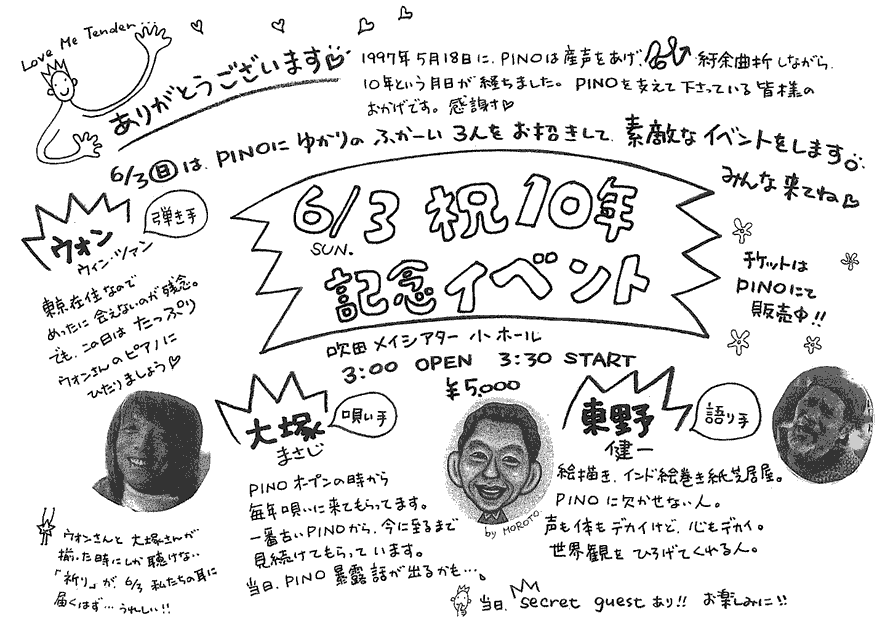 Love Me Tender...
ありがとうございます
1997年5月18日に、PINOは産声をあげ、紆余曲折しながら、
10年という月日が経ちました。PINOを支えて下さっている皆様の
おかげです。感謝♡
6/3㊐は、PINOに ゆかりの ふかーい 3人を お招きして、素敵な イベントをします。
みんな来てね♡
6/3 祝10年
SUN.
記念イベント
吹田メイシアター 小ホール
3:00 OPEN 3:30 START
¥5,000
チケットは
PINOにて
販売中!!
ウォン
ウィン・ツァン
弾き手
東京在住なので
めったに会えないのが残念。
でも、この日は たっぷり
ウォンさんのピアノに
ひたりましょう♡
大塚
まさじ
唄い手
PINOオープンの時から
毎年唄いに来てもらってます。
一番古いPINOから、今に至るまで
見続けてもらって います。
当日、PINO 暴露話が出るかも…。
by MOROTO.
東野
健一
語り手
絵描き、インド絵巻き紙芝居屋。
PINOに欠かせない人。
声も体もデカイけど、心もデカイ。
世界観を ひろげてくれる人。
ウォンさんと 大塚さんが
揃った時にしか聴けない
「祈り」が、6/3 私たちの耳に
届くはず… うれしい!!
当日、secret guest あり!! お楽しみに!!